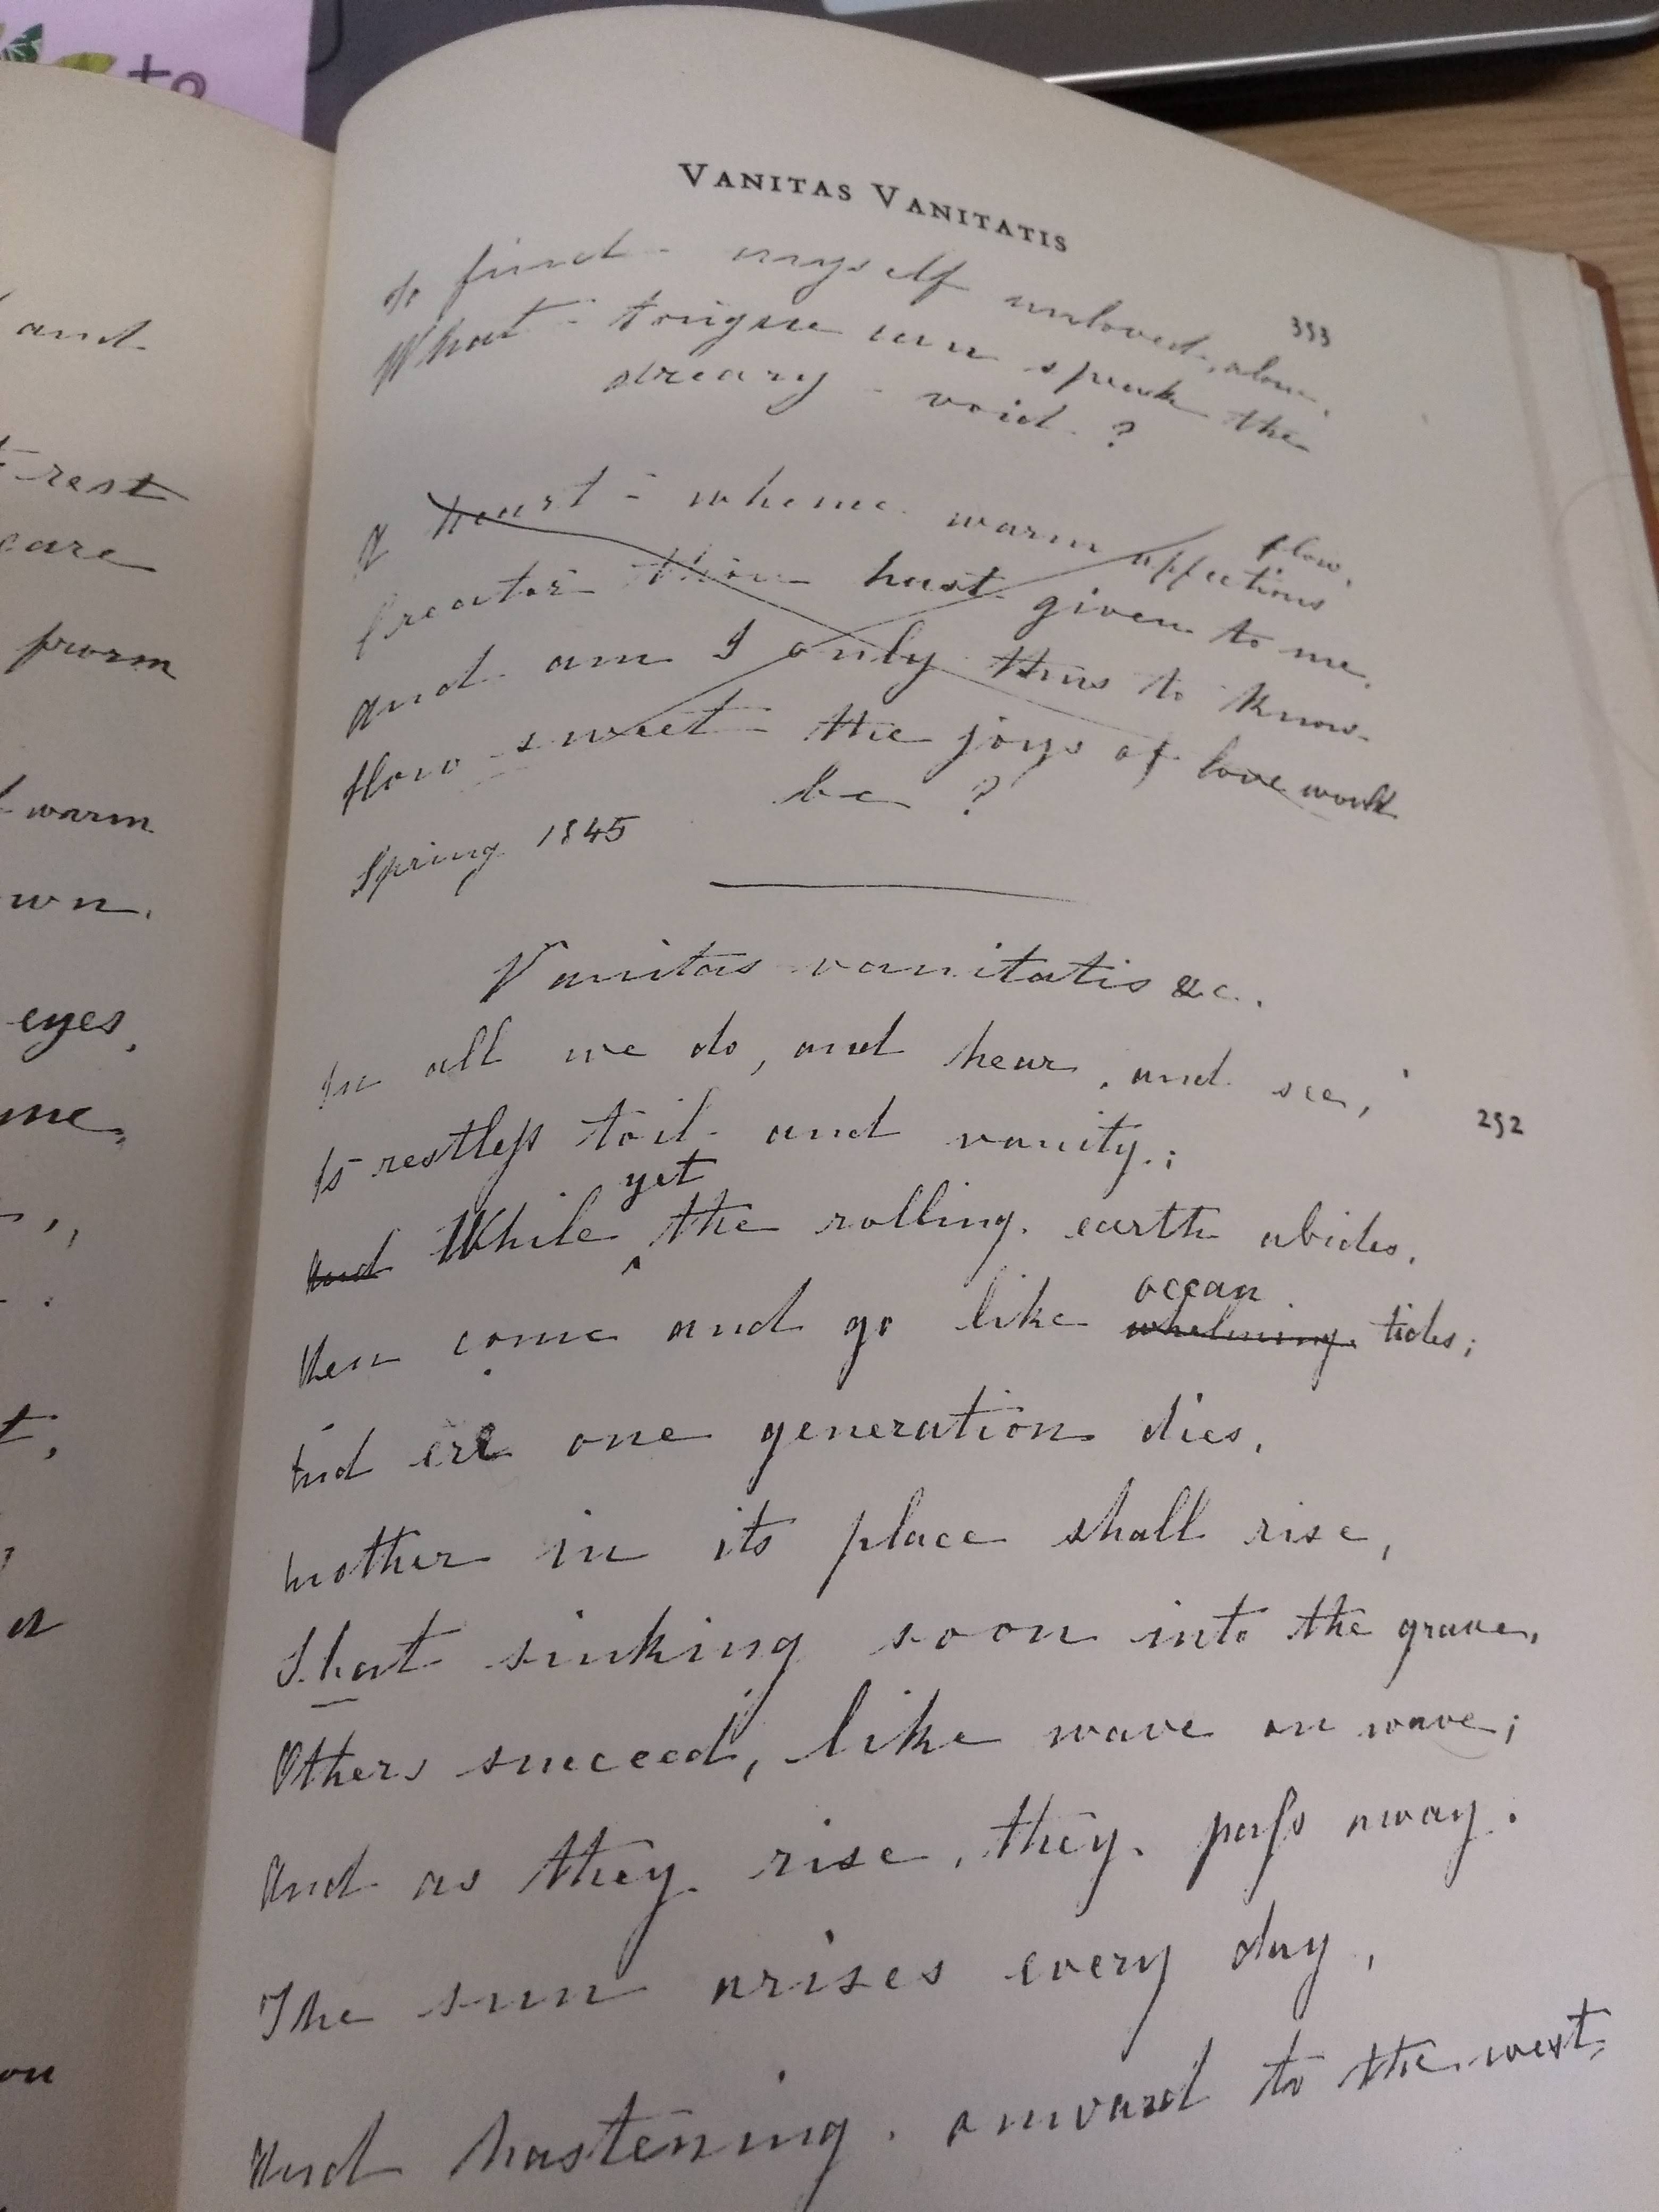 to
and
rest
care
prosm
warm
own.
eyes,
me,
VANITAS VANITATIS
353
To find myself unloved, alone,
What tongue can speak the
dreary void ?
flow,
A heart whence warm affections
Creator thou hast given to me,
And am I only thus to know
How sweet the joys of love would
be ?
Spring 1845
Vanitas vanitatis &c.
In all we do, and hear, and see,
252
Is restless toil and vanity;
yet
And While ‸ the rolling earth abides,
ocean
Men come and go like whelming tides;
And ere one generation dies,
Another in its place shall rise,
That sinking soon into the grave,
Others succeed, like wave on wave;
And as they rise, they pass away.
The sun arises every day,
And hastening onward to the west,